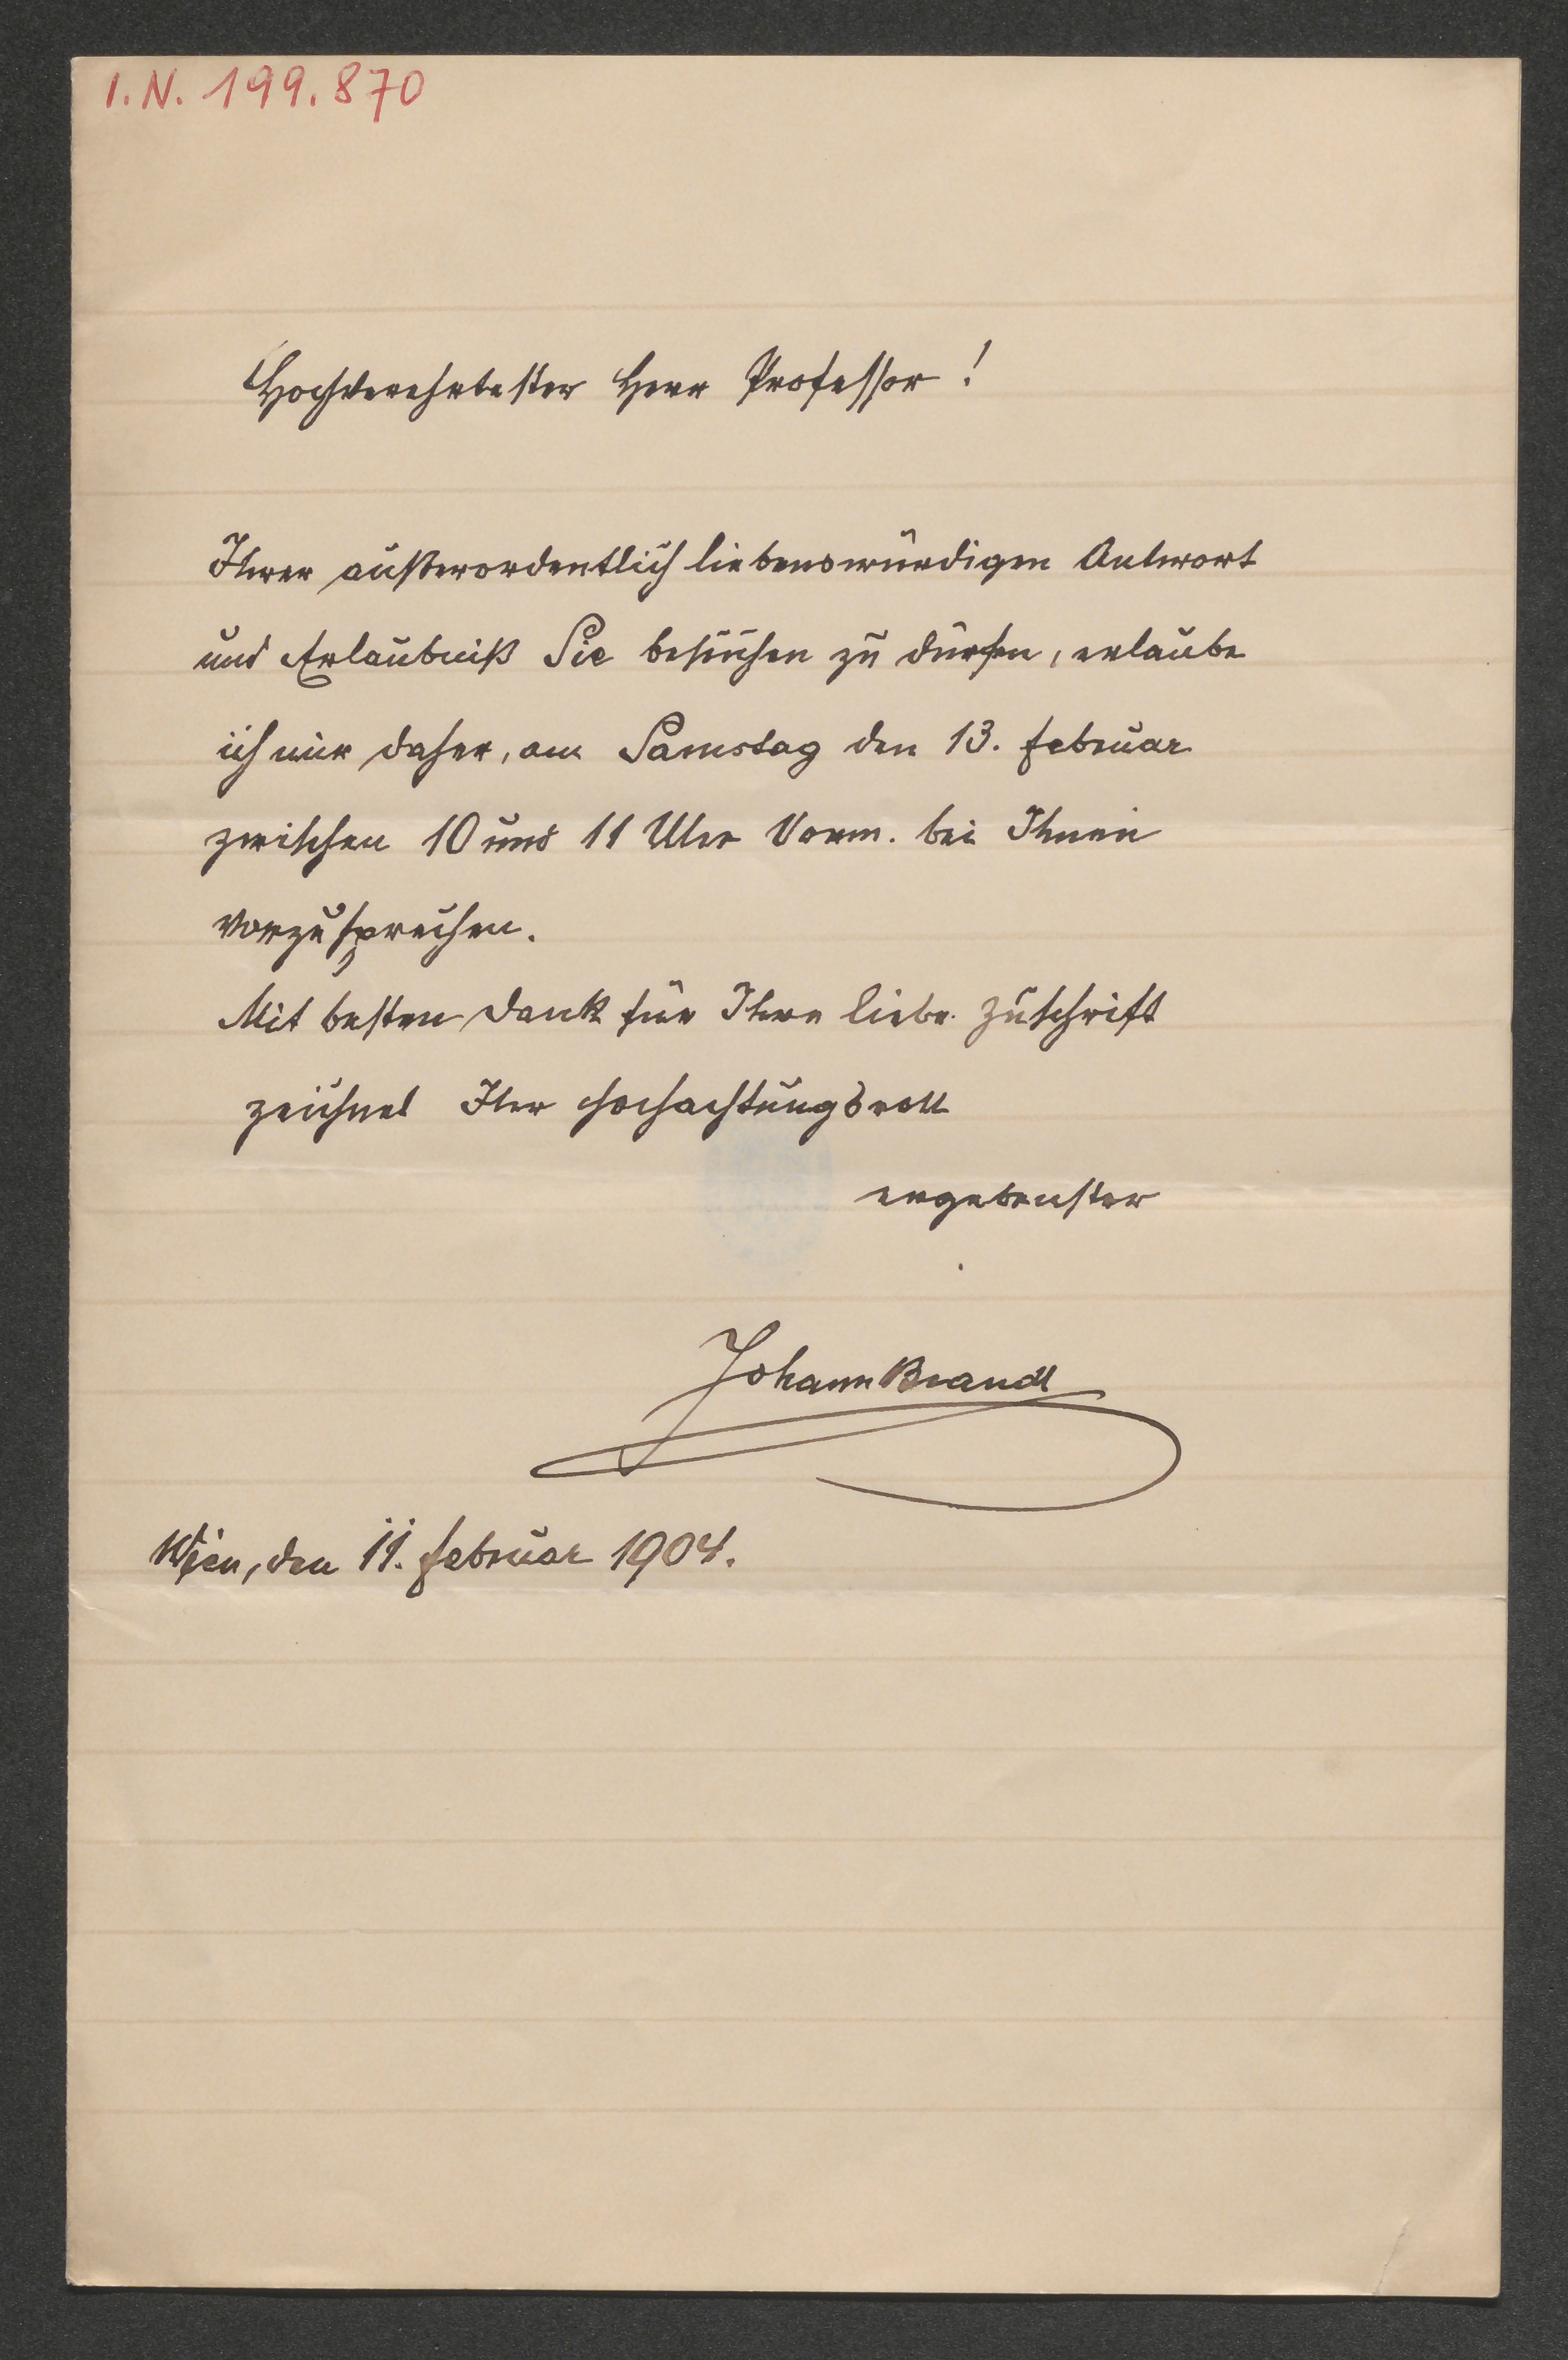 I.N. 199.870
Hochverehrtester Herr Professor!
Ihrer außerordentlich liebenswürdigen Antwort
und Erlaubniß Sie besuchen zu dürfen, erlaube
ich mir daher, am Samstag den 13. Februar
zwischen 10 und 11 Uhr Vorm. bei Ihnen
vorzusprechen.
Mit besten Dank für Ihre liebe Zuschrift
zeichnet Ihr hochachtungsvoll
ergebenster
Johann Brandl
Wien, den 11. Februar 1904.